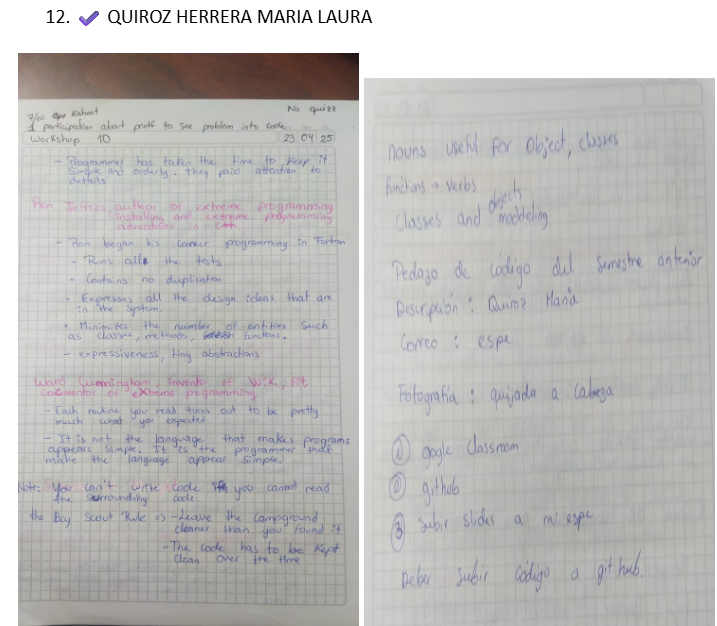 12. QUIROZ HERRERA MARIA LAURA
7/10 Kahoot
No quizz
1 participation about printf to see problem into code
Workshop 10
23 04 25
- Programmer has taken the time to keep it
simple and orderly. They paid attention to
details
Ron Jeffries, author of extreme programming
Installing and extreme programming
adventures in C++
- Ron began his career programming in Fortran
• Runs all the tests
• Contains no duplication
• Expresses all the design ideas that are
in the system.
• Minimizes the number of entities such
as classes, methods, functions.
- expressiveness, tiny abstractions
Ward Cunningham, Invento of Wiki, Fit,
coinventor of eXtreme programming
- Each routine you read turns out to be pretty
much what you expected
- It is not the language that makes programs
appears simple. It is the programmer that
make the language appear simple.
Note: You can't write code if you cannot read
the surrounding code.
the Boy Scout Rule => - Leave the campground
cleaner than you found it
- The code has to be kept
clean over the time
nouns useful for Object, classes
functions → verbs
Classes and objects moddeling
Pedazo de código del semestre anterior
Descripción : Quiroz María
Correo : espe
Fotografía : quijada a cabeza
① google classroom
② github
③ subir slides a mi espe
Deber subir código a git hub.